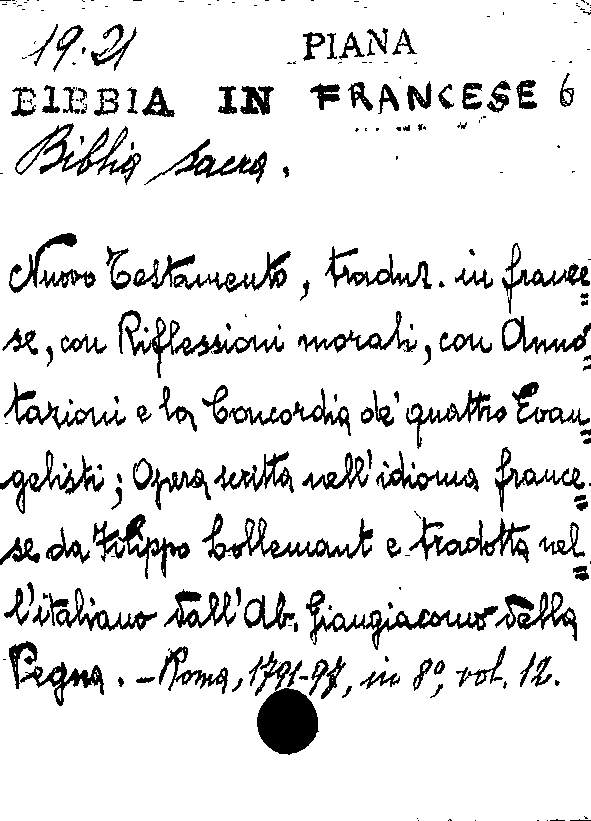 19.21
PIANA
BIBBIA IN FRANCESE 6
Biblia sacra.
Nuovo Testamento, traduz. in france=
se, con Riflessioni morali, con Anno=
tazioni e la Concordia de' quattro Evan=
gelisti; Opera scritta nell'idioma france=
se da Filippo Lollemant e tradotta nel=
l'italiano dall'Ab. Giangiacomo della
Pegna. - Roma, 1791-97, in 8º, vol. 12.